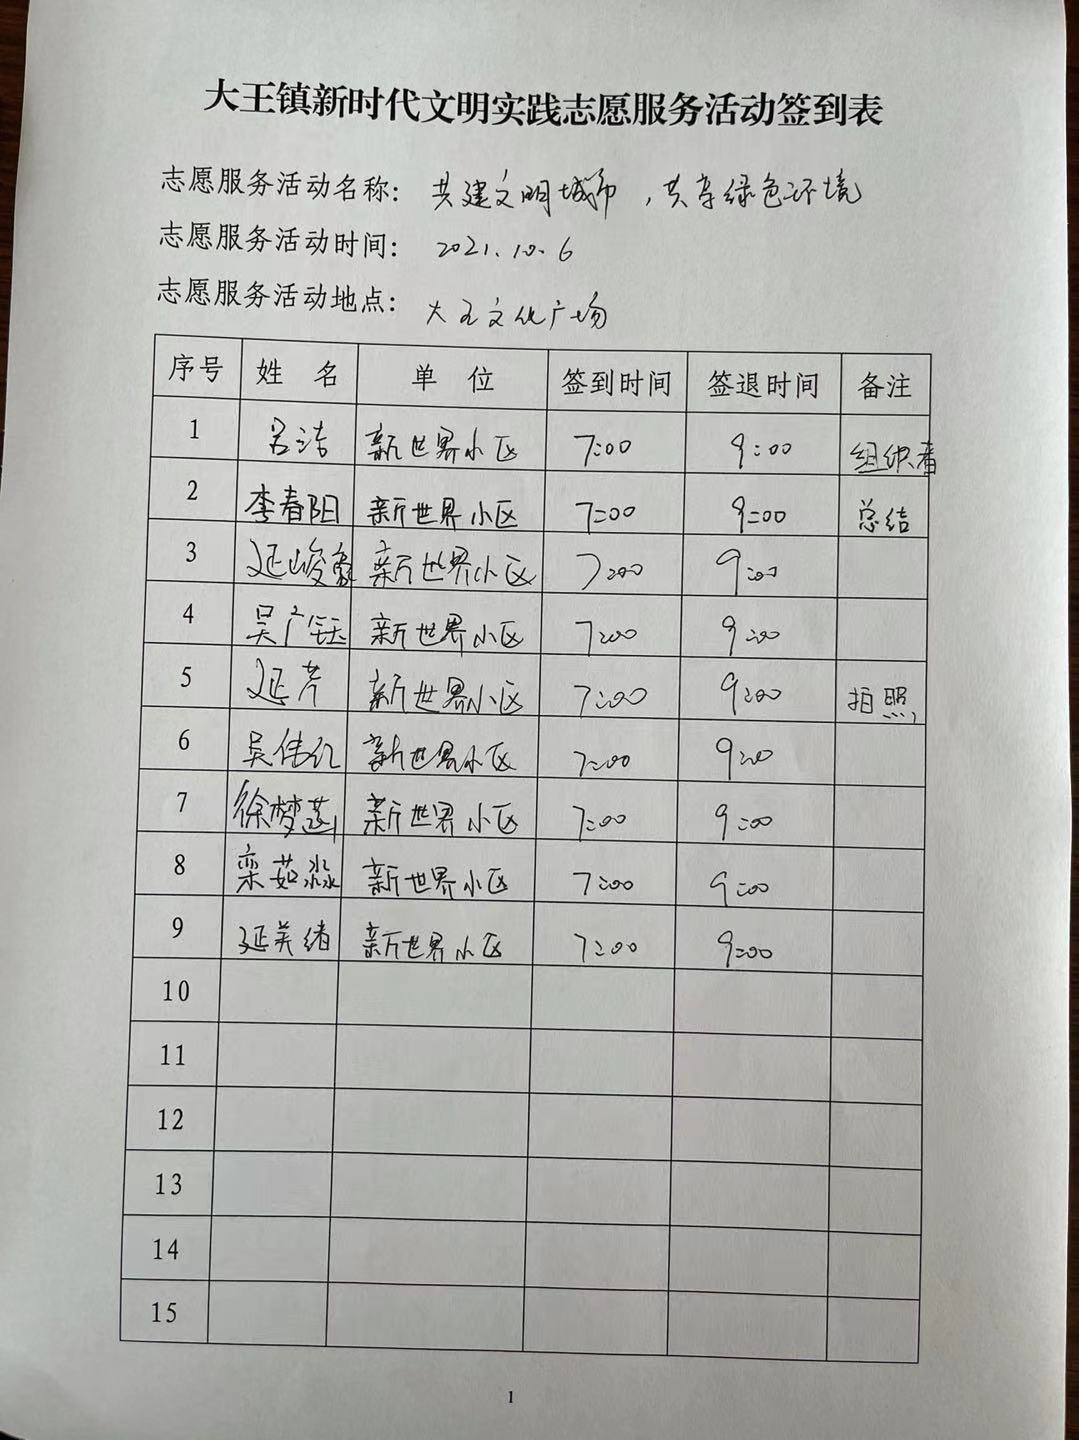 大王镇新时代文明实践志愿服务活动签到表
志愿服务活动名称：共建文明城市，共享绿色环境
志愿服务活动时间：2021.10.6
志愿服务活动地点：大王文化广场
序号 姓 名 单 位 签到时间 签退时间 备注
1 吕洁 新世界小区 7:00 9:00 组织者
2 李春阳 新世界小区 7:00 9:00 总结
3 延峻豪 新世界小区 7:00 9:00
4 吴广钰 新世界小区 7:00 9:00
5 延芹 新世界小区 7:00 9:00 拍照
6 吴伟亿 新世界小区 7:00 9:00
7 徐梦菡 新世界小区 7:00 9:00
8 栾茹淼 新世界小区 7:00 9:00
9 延美绪 新世界小区 7:00 9:00
10
11
12
13
14
15
1